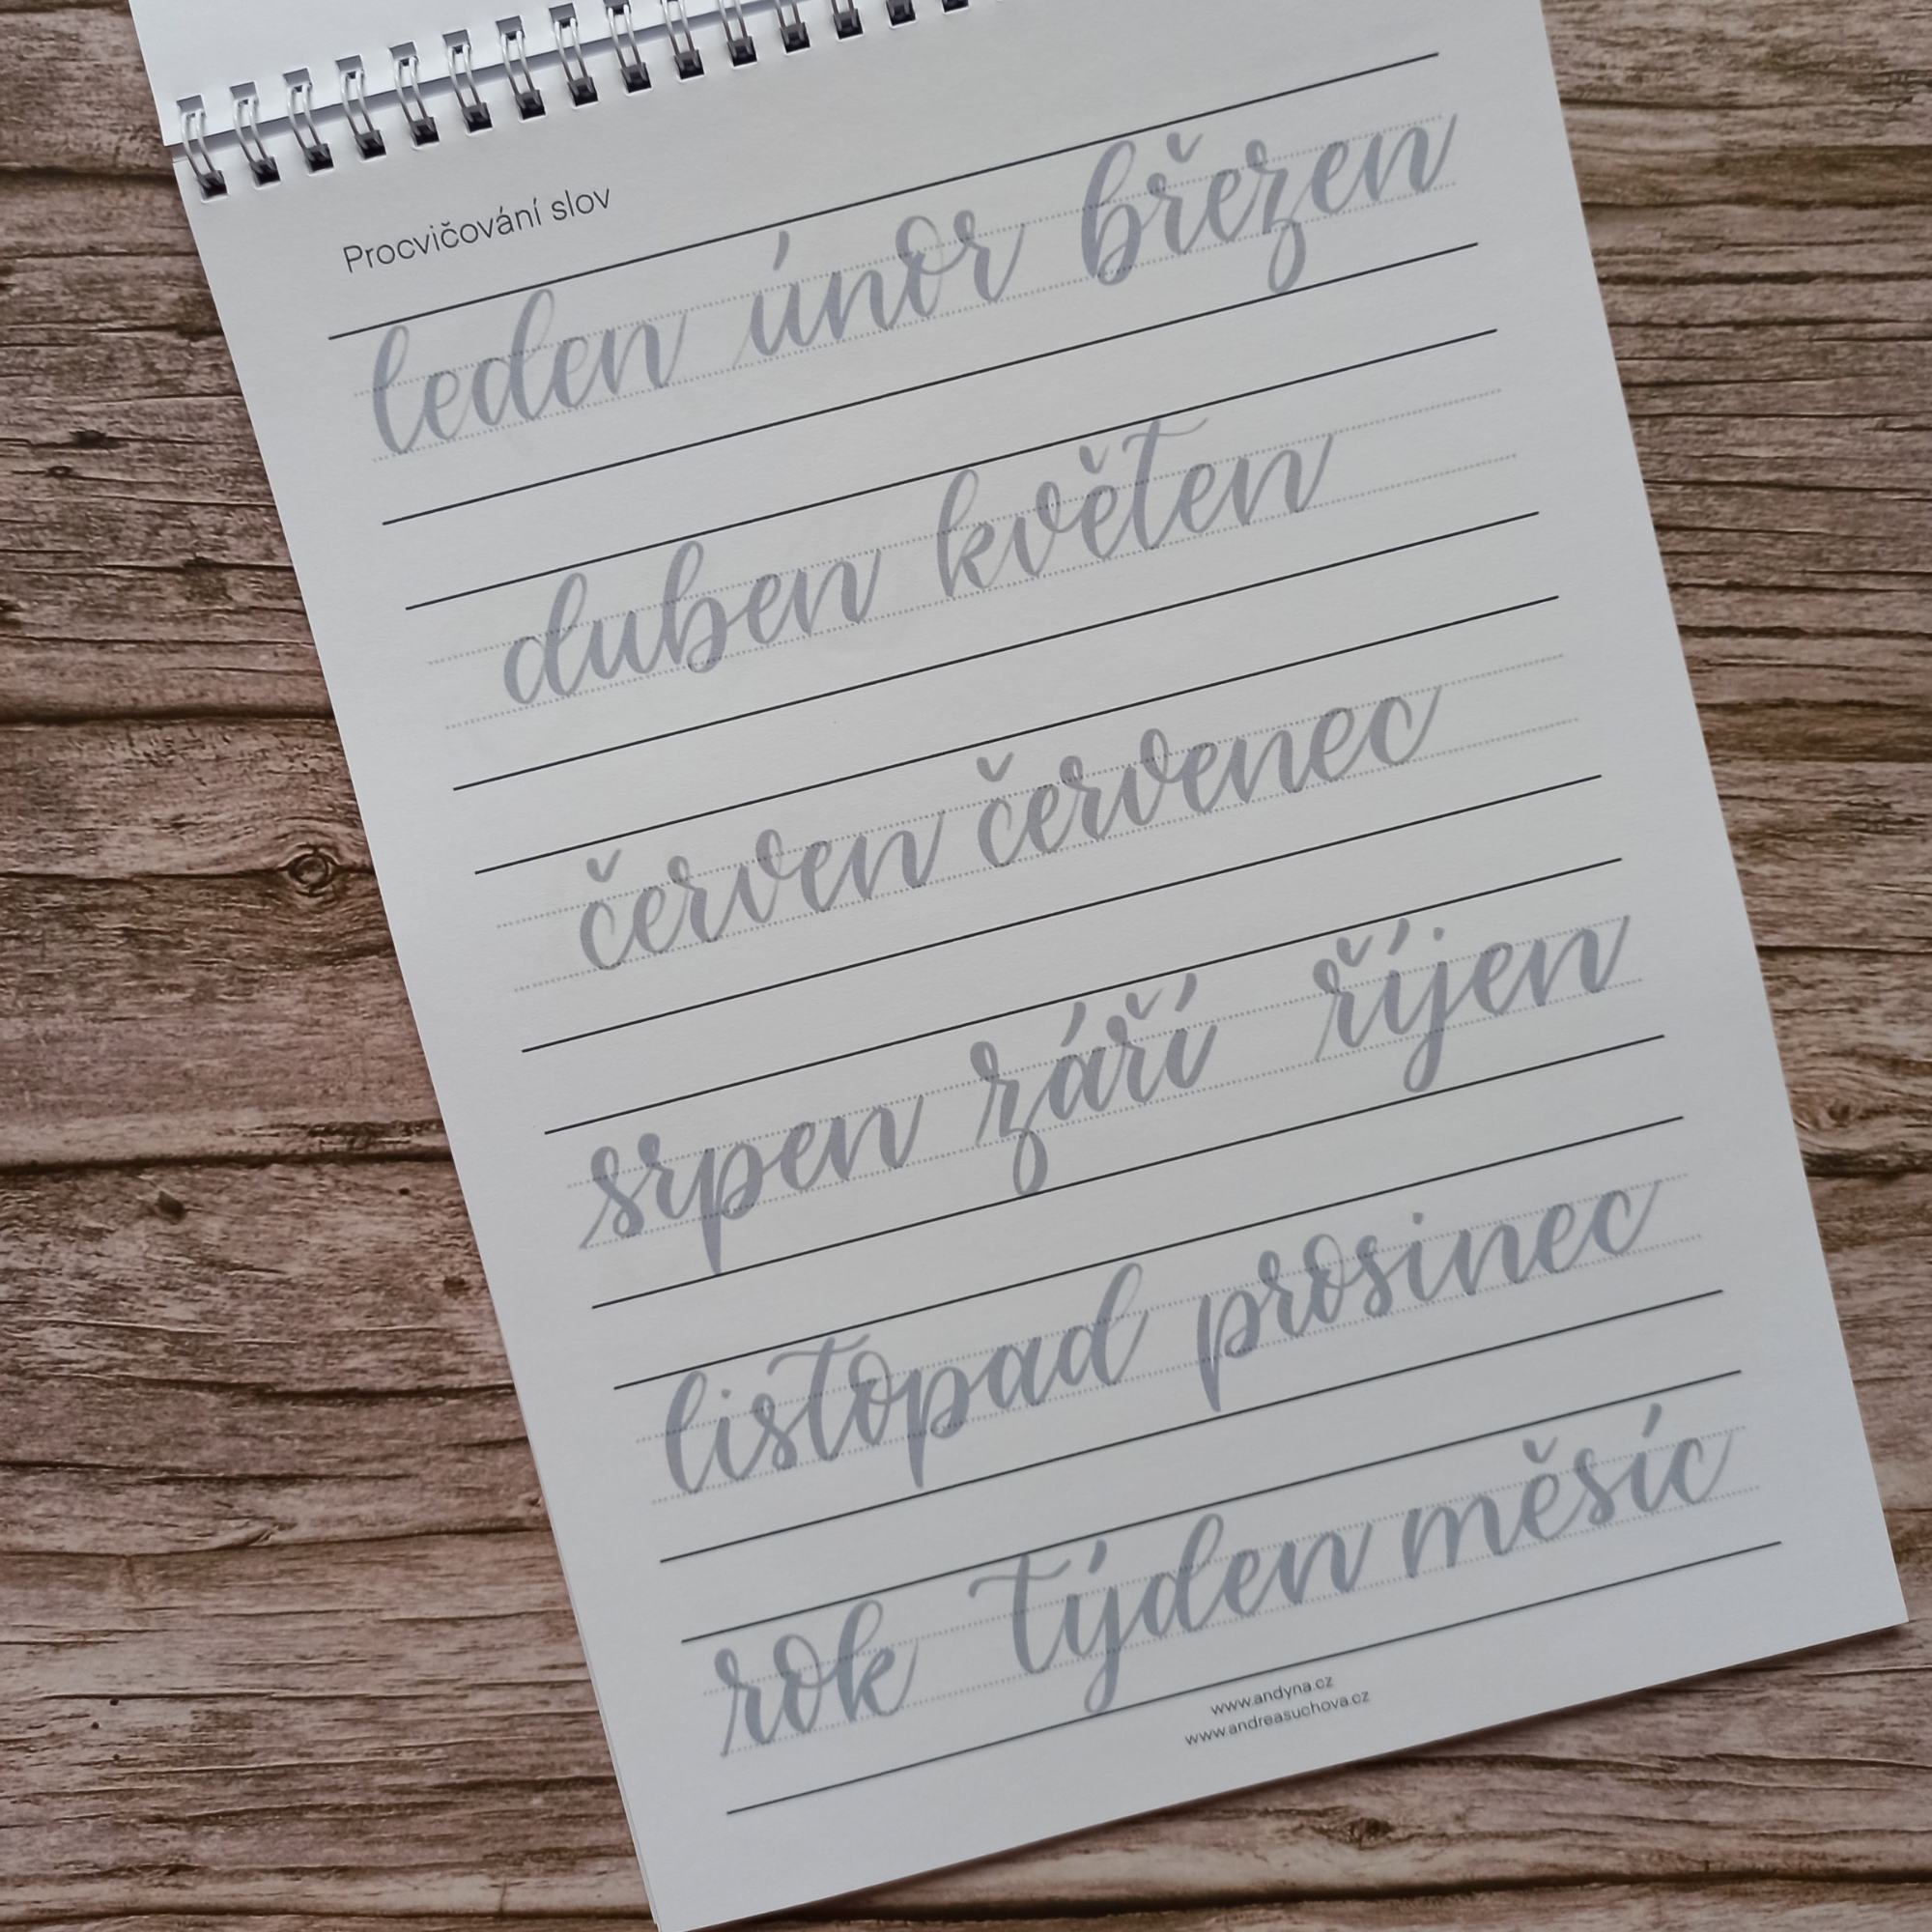 Procvičování slov
leden únor březen
duben květen
červen červenec
srpen září říjen
listopad prosinec
rok týden měsíc
www.andyna.cz
www.andreasuchova.cz